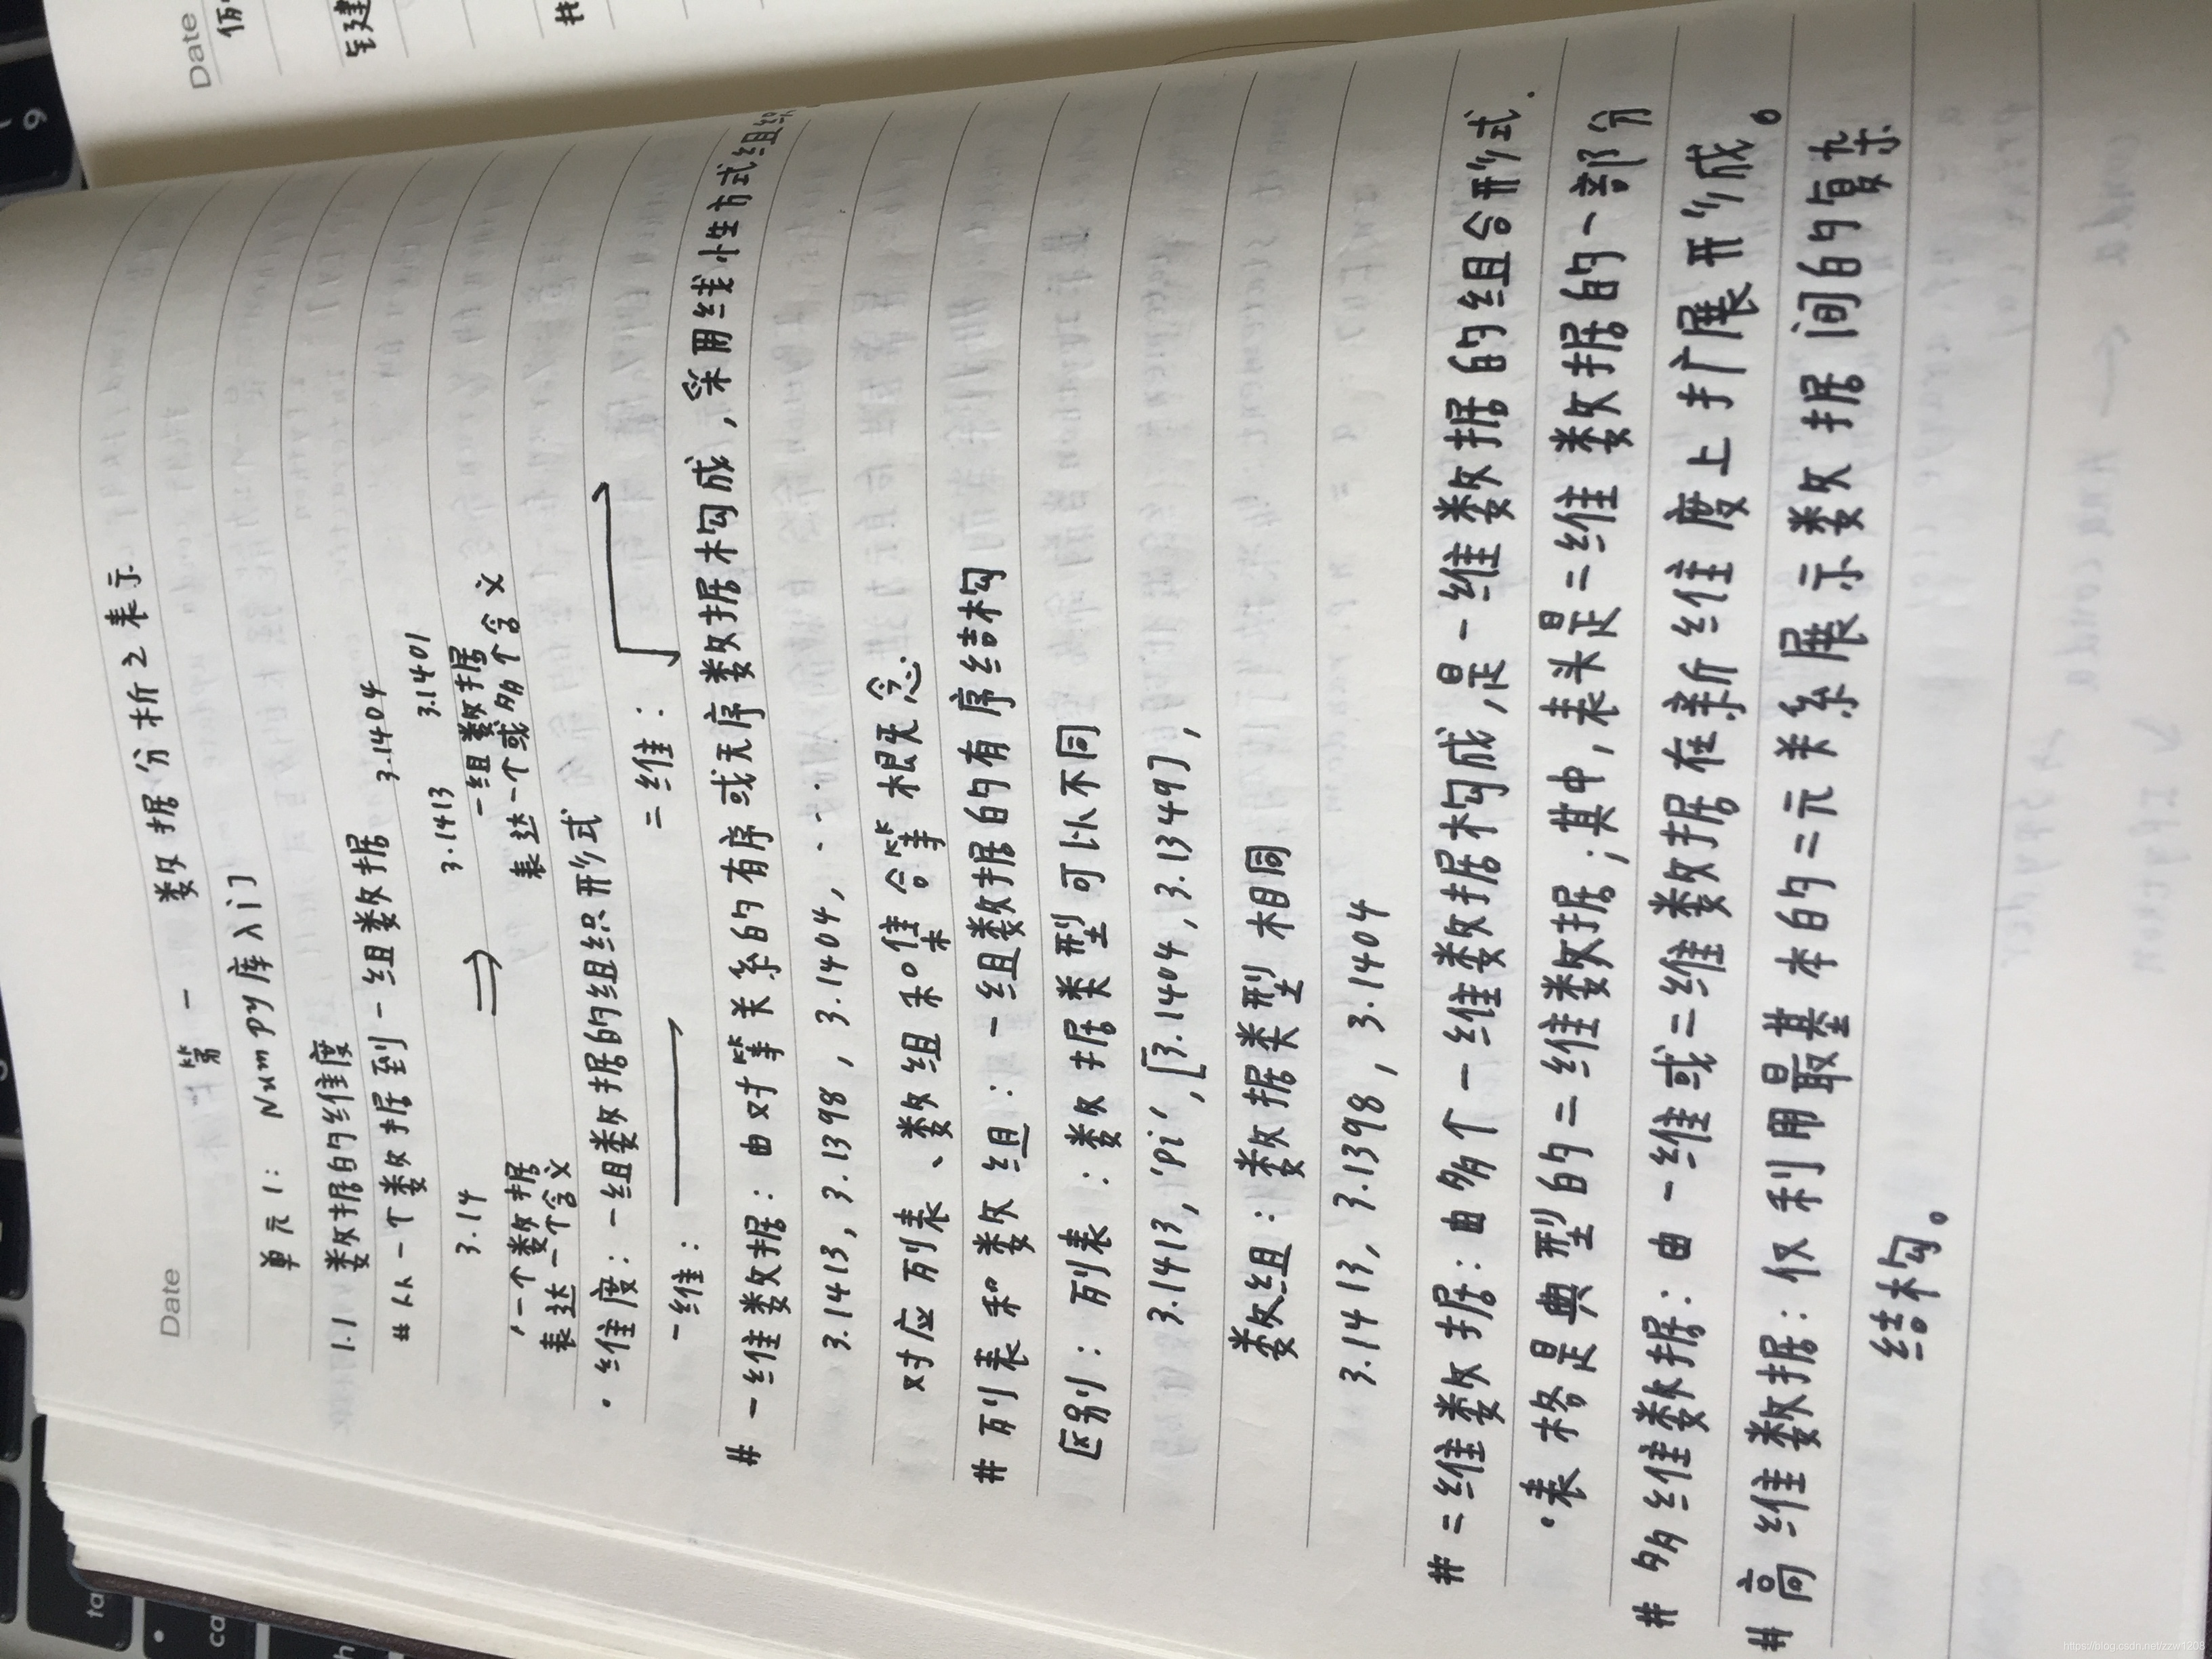 Date
第一 数据分析之表示
单元1: Numpy库入门
1.1 数据的维度
# 从一个数据到一组数据
3.14 ⇒ 3.1413 3.1404 3.1401
一个数据 一组数据
表达一个含义 表达一个或多个含义
· 维度:一组数据的组织形式
一维: 二维:
# 一维数据:由对等关系的有序或无序数据构成,采用线性方式组
3.1413, 3.1398, 3.1404, ...
对应列表、数组和集合等概念.
# 列表和数组:一组数据的有序结构
区别:列表:数据类型可以不同
3.1413,'pi',[3.1404,3.1349],
数组:数据类型相同
3.1413, 3.1398, 3.1404
# 二维数据:由多个一维数据构成,是一维数据的组合形式.
·表格是典型的二维数据;其中,表头是二维数据的一部分
# 多维数据:由一维或二维数据在新维度上扩展形成。
# 高维数据:仅利用最基本的二元关系展示数据间的复杂
结构。
Date
tab
9
https://blog.csdn.net/zzw1208